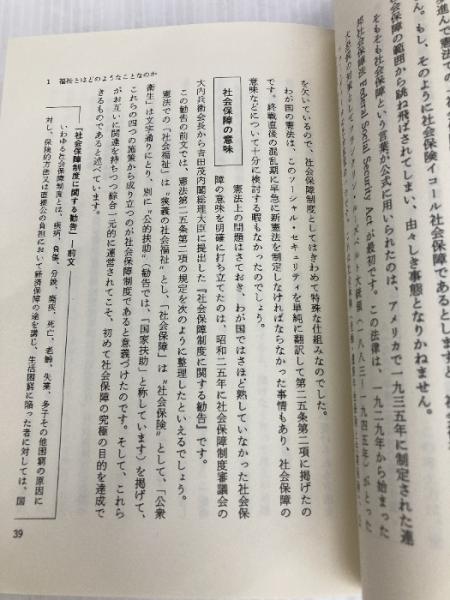 進んで憲法での「
ん。もし、そのように社会保険イコール社会保障であるとしますと、社会
保障の範囲から跳ね飛ばされてしまい、由々しき事態となりかねません。
そもそも社会保障という言葉が公式に用いられたのは、アメリカで一九三五年に制定された連
社会保障法 Federal Social Security Act が最初です。この法律は、一九二九年から始まった
ルト大統領（一八八二―一九四五年）がとった
を欠いているので、社会保障制度としてはきわめて特殊な仕組みなのでした。
わが国の憲法は、このソーシャル・セキュリティを単純に翻訳して第二五条第二項に掲げたの
です。終戦直後の混乱期に早急に新憲法を制定しなければならなかった事情もあり、社会保障の
意味などについて十分に検討する暇もなかったのでしょう。
社会保障の意味
憲法上の問題はさておき、わが国ではさほど熟していなかった社会保
障の意味を明確に打ち立てたのは、昭和二五年に社会保障制度審議会の
大内兵衛会長から吉田茂内閣総理大臣に提出した『社会保障制度に関する勧告』です。
この勧告の前文では、憲法第二五条第二項の規定を次のように整理したといえるでしょう。
憲法での「社会福祉」は〝狭義の社会福祉〟とし、「社会保障」は〝社会保険〟として、「公衆
衛生」は文字通りにとり、別に〝公的扶助〟（勧告では、「国家扶助」と称しています）を掲げて、
これらの四つの施策から成り立つのが社会保障制度であると意義づけたのです。そして、これら
がお互いに関連を持ちつつ綜合一元的に運営されてこそ、初めて社会保障の究極の目的を達成で
きるものであると述べています。
『社会保障制度に関する勧告』―前文
いわゆる社会保障制度とは、疾病、負傷、分娩、廃疾、死亡、老齢、失業、多子その他困窮の原因に
対し、保険的方法又は直接公の負担において経済保障の途を講じ、生活困窮に陥った者に対しては、国
1 福祉とはどのようなことなのか
39